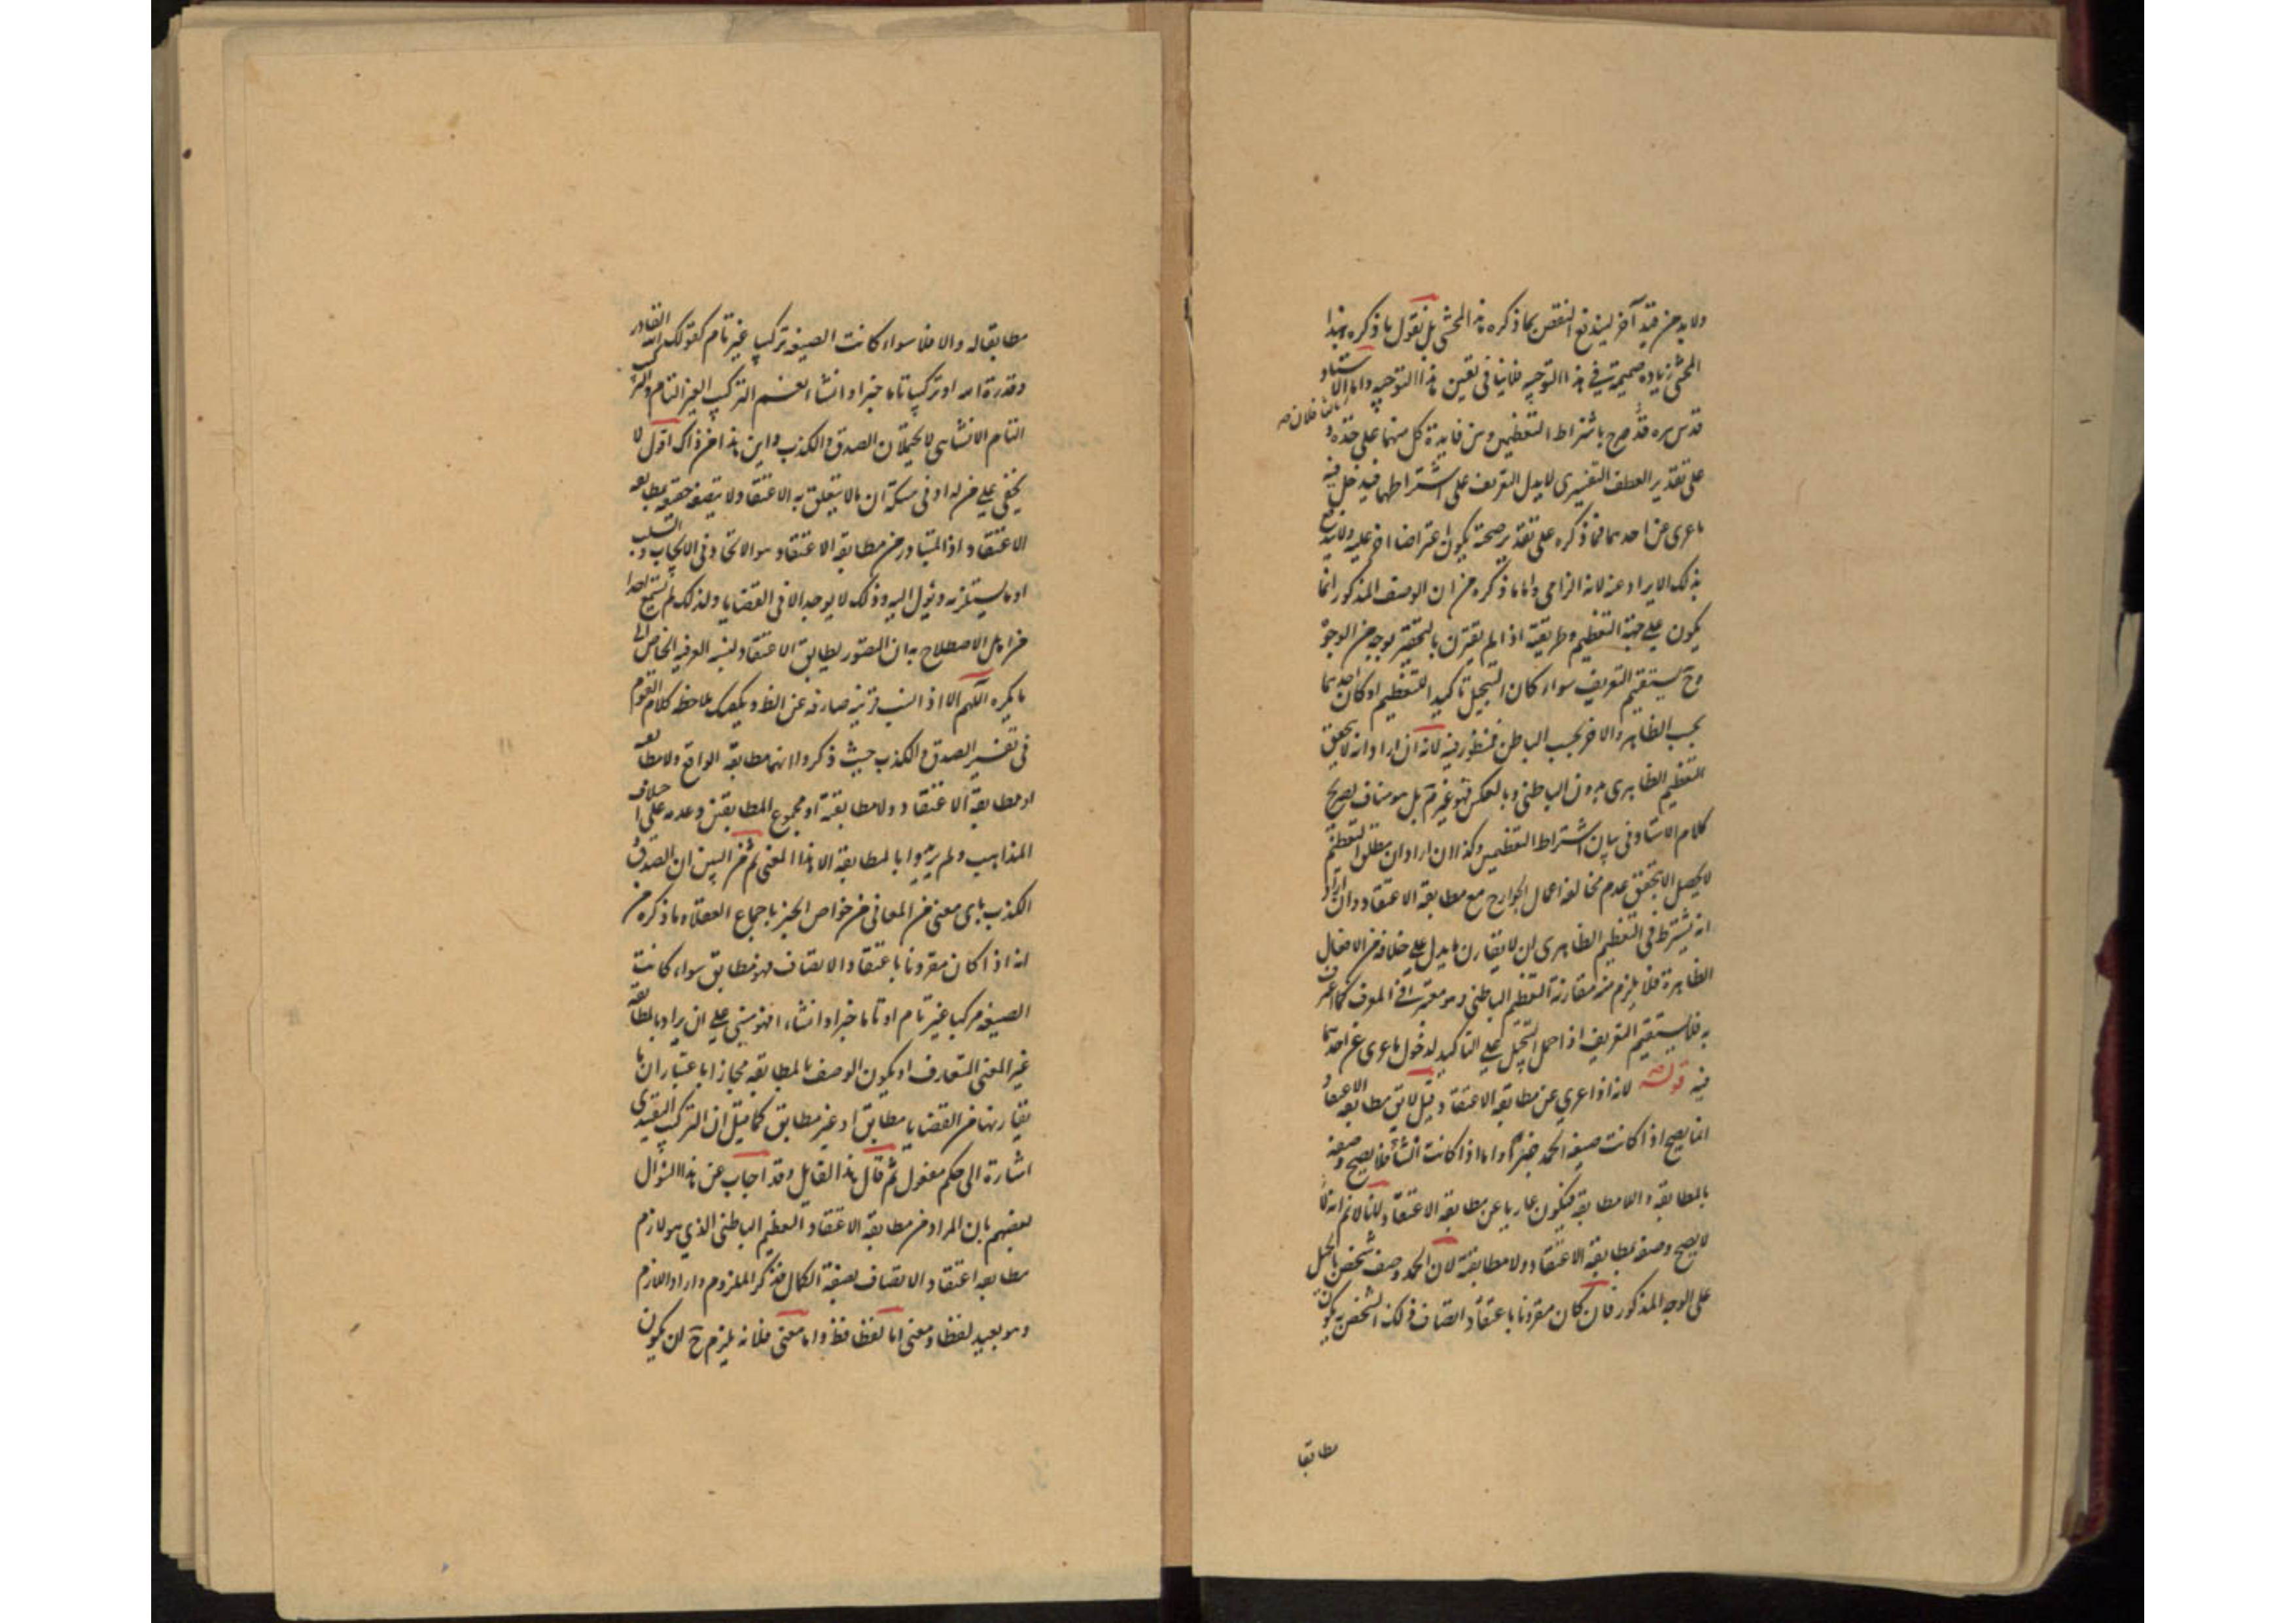 ولابد من قيد آخر ليندفع النقض بما ذكره هذا المحشى بل نقول ما ذكره هذا
المحشى زيادة ضميمة في هذا التوجيه فلانيا في تعين هذا التوجيه واما
ثالثا فلان
الاستاد
قدس سره قد صرح باشتراط التعظيمين ومن فايدة كل منهما على حدة و
على تقدير العطف التفسيرى لا يدل التعريف على اشتراطهما فيدخل فيه
ما عرى عن احدهما فما ذكره على تقدير صحته يكون اعتراضا اخر عليه ولا يندفع
بذلك الايراد عنه لانه الزامى واما ما ذكره من ان الوصف المذكور انما
يكون على جهة التعظيم وطريقته اذا لم يقترن بالتحقير بوجه من الوجوه
وح يستقيم التعريف سواء كان التبجيل تاكيدا للتعظيم او كان احدهما
بحسب الظاهر والاخر بحسب الباطن فمنظور فيه لانه ان اراد انه لا يتحقق
التعظيم الظاهرى بدون الباطنى وبالعكس فهو غير تم بل هو مناف لصريح
كلام الاستاد في بيان اشتراط التعظيمين وكذا ان اراد ان مطلق التعظيم
لا يحصل الا بتحقق عدم مخالفة اعمال الجوارح مع مطابقة الاعتقاد وان اراد
انه يشترط في التعظيم الظاهرى ان لا يقارن ما يدل على خلافه من الافعال
الظاهرة فلا يلزم منه مقارنة التعظيم الباطنى وهو معتبر في المعرف كما اعترف
به فلا يستقيم التعريف اذا حمل التبجيل على التاكيد لدخول ما عرى عن احدهما
فيه قوله لانه اذا عرى عن مطابقة الاعتقاد قيل لايق مطابقة الاعتقاد
انما يصح اذا كانت صيغة الحمد خبرا واما اذا كانت انشاء فلا يصح وصفه
بالمطابقة واللا مطابقة فيكون عاريا عن مطابقة الاعتقاد لانا لانم انه
لا يصح وصفه بمطابقة الاعتقاد ولا مطابقته لان الحمد وصف شخص بالجميل
على الوجه المذكور فان كان مقرونا باعتقاد اتصاف ذلك الشخص به يكون
مطابقا
مطابقا له والا فلا سواء كانت الصيغة تركيبا غير تام كقولك الله القادر
وقدرة الله او تركيبا تاما خبرا او انشاء نعم التركيب الغير التام والمركب
التام الانشاى لا يحتملان الصدق والكذب واين هذا من ذاك اقول لا
يخفى على من له ادنى مسكة ان ما لا يتعلق به الاعتقاد لا يتصف حقيقة بمطابقة
الاعتقاد اذ المتبادر من مطابقة الاعتقاد هو الاتحاد في الايجاب والسلب
او ما يستلزمه ويؤل اليه وذلك لا يوجد الا في القضايا ولذلك لم تسمع احدا
من اهل الاصطلاح به ان التصور يطابق الاعتقاد
ما يكره اللهم الا اذا انتسب قرينة صارفة عن الظ ويكفيك ملاحظة كلام القوم
في تفسير الصدق والكذب حيث ذكروا انهما مطابقة الواقع ولا مطابقته
او مطابقة الاعتقاد ولا مطابقته او مجموع المطابقتين وعدمه على اختلاف
المذاهب ولم يريدوا بالمطابقة الا هذا المعنى ثم من البين ان الصدق و
الكذب باى معنى من المعانى من خواص الخبر باجماع العقلاء وما ذكره من
انه اذا كان مقرونا باعتقاد الاتصاف فهو مطابق سواء كانت
الصيغة مركبا غير تام او تاما خبرا او انشاء فهو مبنى على ان يراد بالمطابقة
غير المعنى المتعارف او يكون الوصف بالمطابقة مجازا باعتبار ان ما
يقارنها من القضايا مطابق او غير مطابق كما قيل ان التركيب التقييدى
اشارة الى حكم معقول ثم قال هذا القايل وقد اجاب عن هذا السؤال
بعضهم بان المراد من مطابقة الاعتقاد التعظيم الباطنى الذي هو لازم
مطابقة اعتقاد الاتصاف بصفة الكمال فذكر الملزوم واراد اللازم
وهو بعيد لفظا ومعنى اما لفظا فظ واما معنى فلانه يلزم ح ان يكون